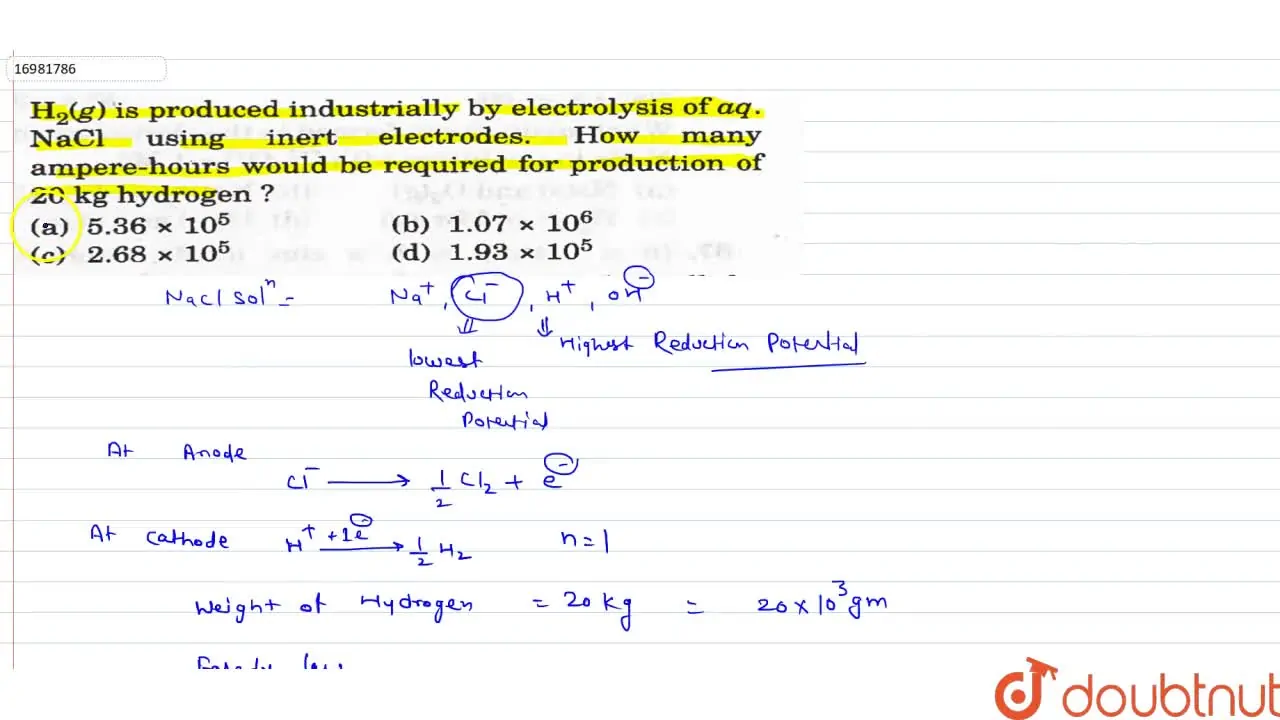 16981786
H₂(g) is produced industrially by electrolysis of aq.
NaCl using inert electrodes. How many
ampere-hours would be required for production of
20 kg hydrogen ?
(a) 5.36 × 10⁵ (b) 1.07 × 10⁶
(c) 2.68 × 10⁵ (d) 1.93 × 10⁵
NaCl Solⁿ = Na⁺, Cl⁻, H⁺, OH⁻
⇓ ⇓ Highest Reduction Potential
lowest
Reduction
Potential
At Anode
Cl⁻ ⟶ 1/2 Cl₂ + e⁻
At Cathode H⁺ +1e⁻ ⟶ 1/2 H₂ n=1
Weight of Hydrogen = 20 kg = 20 × 10³ gm
doubtnut